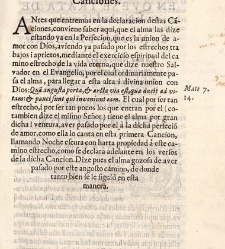 Canciones.
ANtes que entremos en la declaracion destas Cã-
ciones, conviene saber aqui, que el alma las dize
estando ya en la Perfecion, que es la union de a-
mor con Dios, aviendo ya pasado por los estrechos tra-
bajos i aprietos, mediante el exercicio espiritual del ca-
mino estrecho de la vida eterna, que dize nuestro Salva-
dor en el Evangelio, por el cual ordinariamente pa-
sa el alma, para llegar a esta alta i divina union con
Dios: Quã angusta porta, & arcta via est, quæ ducit ad vi-
tam: & pauci sunt qui inveniunt eam. El cual por ser tan
estrecho, i por ser tan pocos los que entran por el (co-
mo tambien dize el mismo Señor) tiene el alma por gran
dicha i ventura, aver pasado por el à la dicha perfeciõ
de amor, como ella lo canta en esta primera Cancion,
llamando Noche escura con harta propiedad à este ca-
mino estrecho, como se declara adelante en los versos
de la dicha Cancion. Dize pues el alma gozosa de aver
pasado por este angosto camino, de donde
tanto bien se le siguiò en esta
manera.
Matt 7.
14.